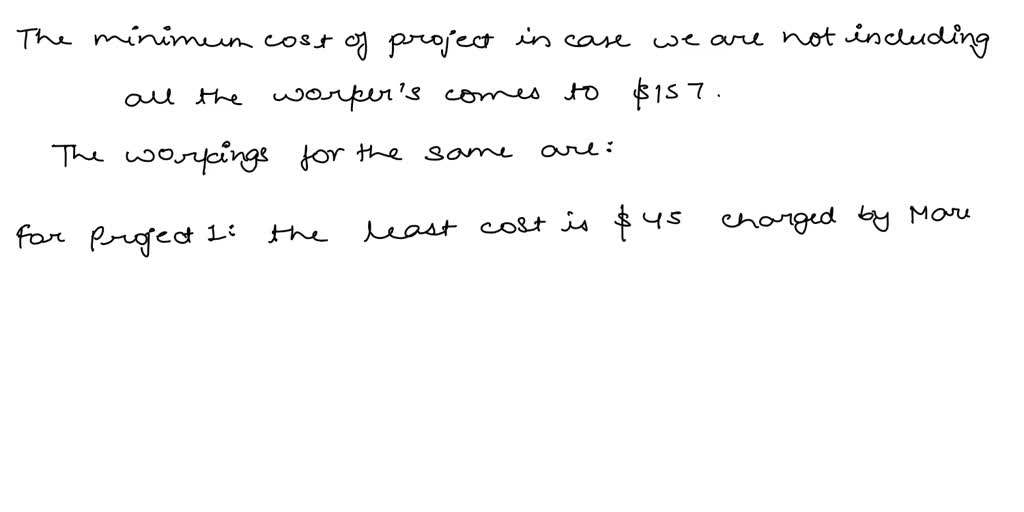 The minimum cost of project in case we are not including
all the worker's comes to $157.
The workings for the same are:
For Project 1: the least cost is $45 charged by Mare